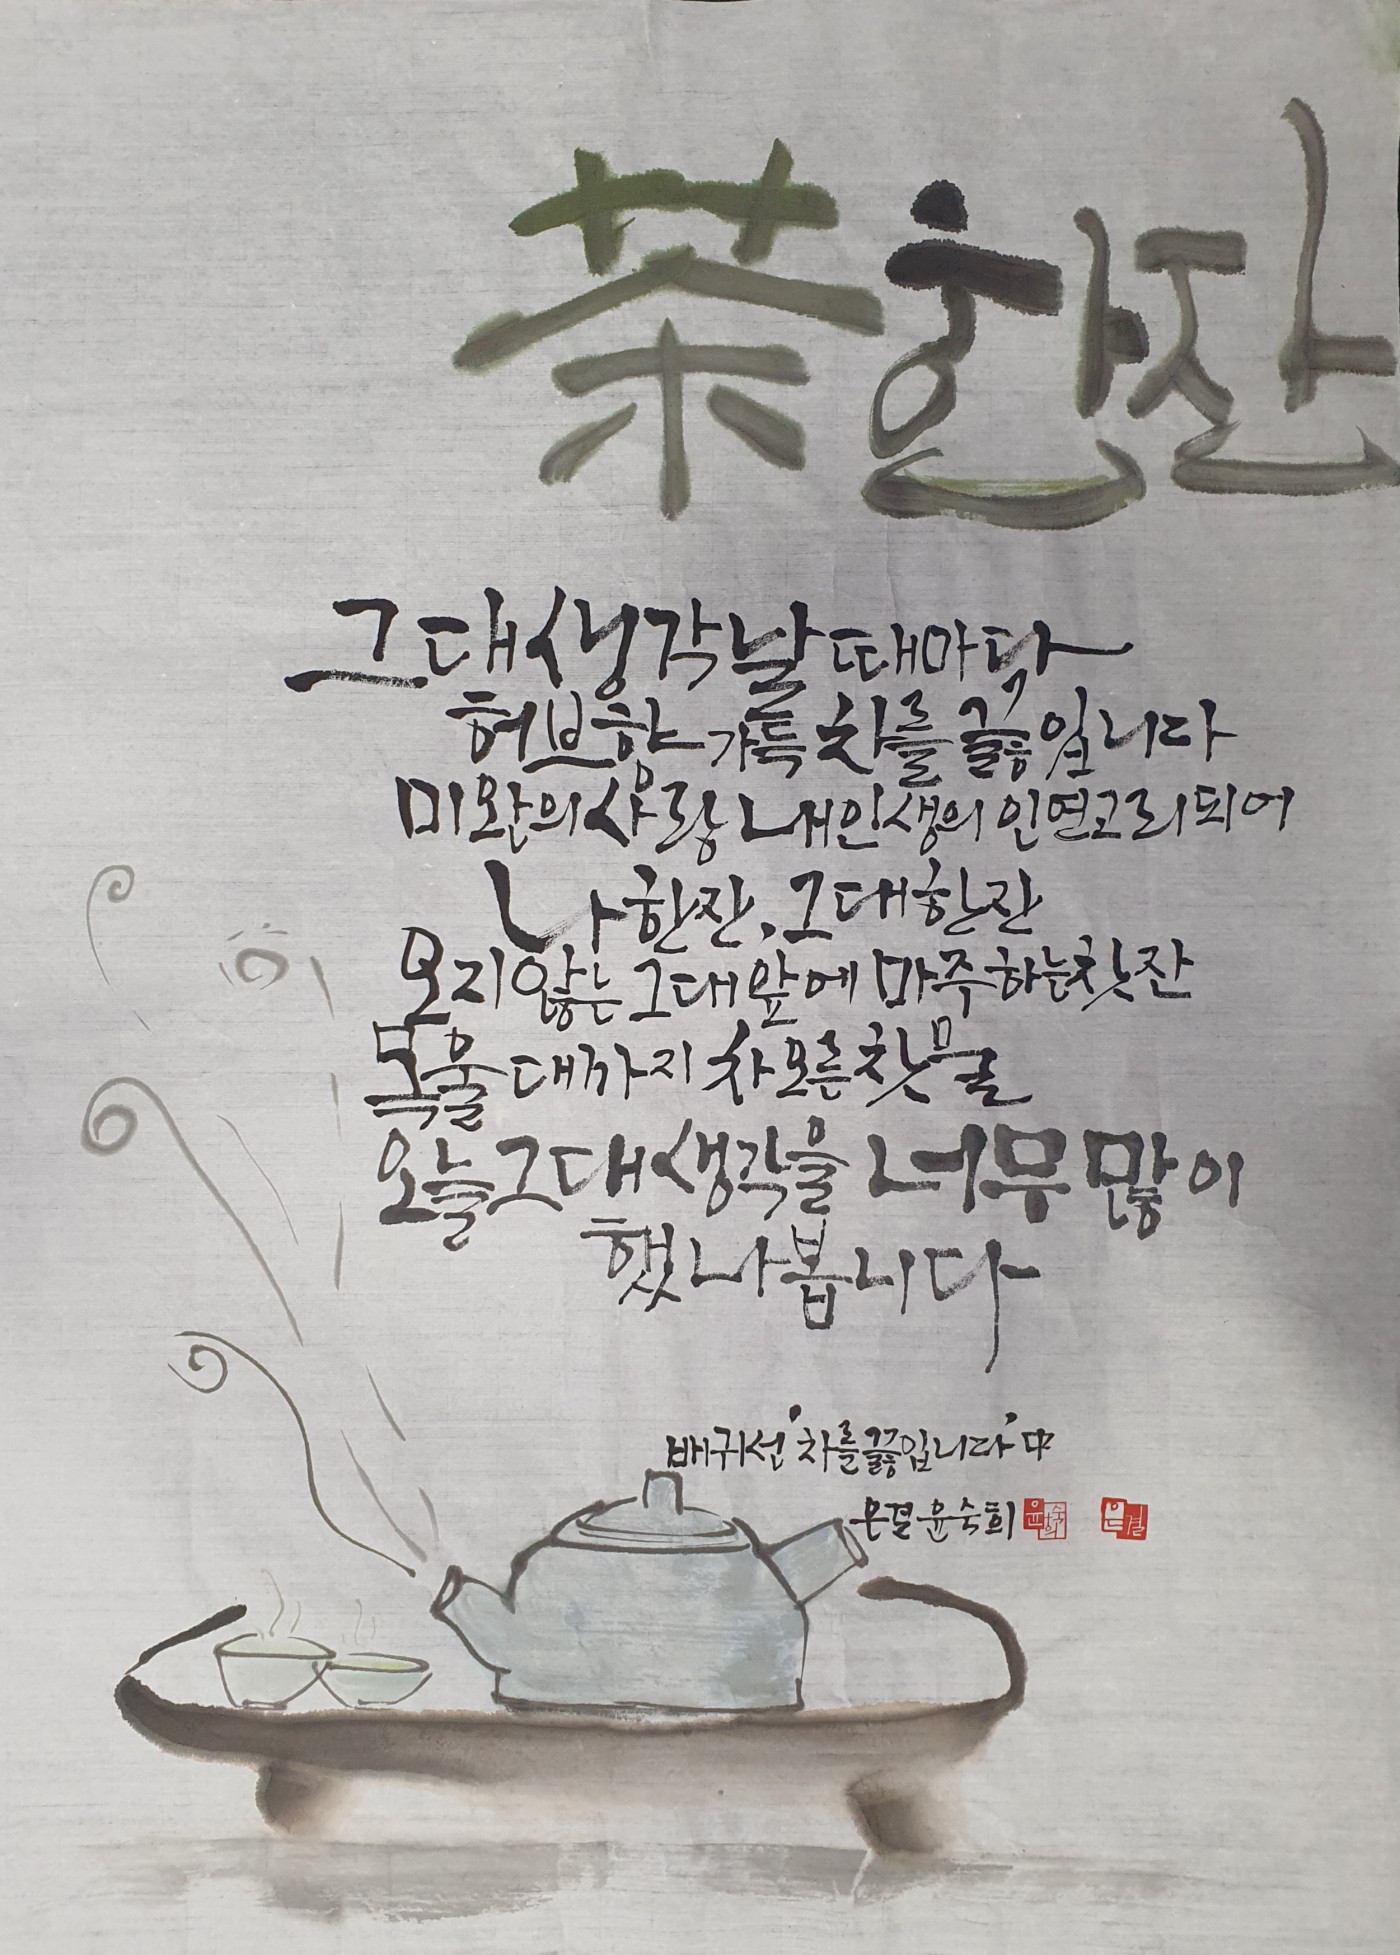 茶한잔
그대생각날때마다
허브향 가득 차를 끓입니다
미완의사랑 내인생의 인연고리되어
나한잔, 그대한잔
오지않는 그대앞에 마주하는찻잔
목울대까지 차오른찻물
오늘그대생각을 너무많이
했나봅니다
배귀선 '차를끓입니다' 中
은결 윤숙희 윤숙희 은결